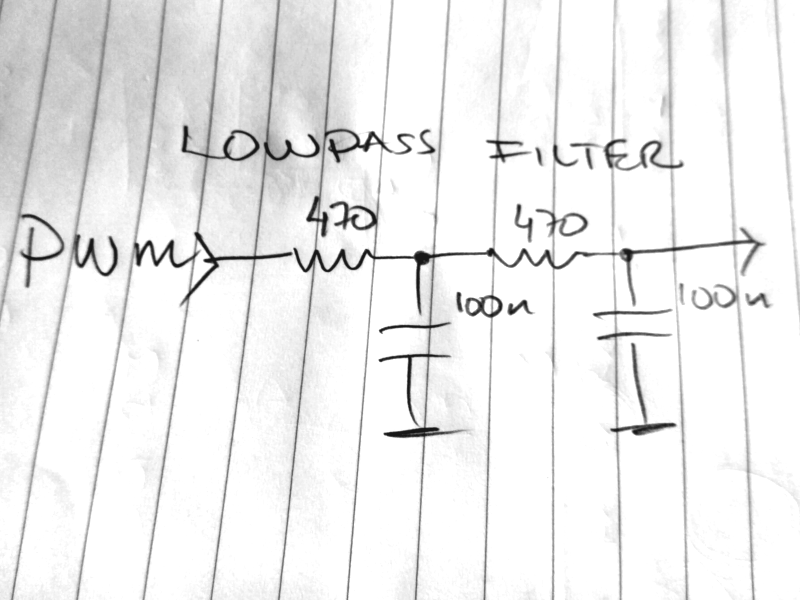 LOWPASS FILTER
470 470
PWM
100n 100n